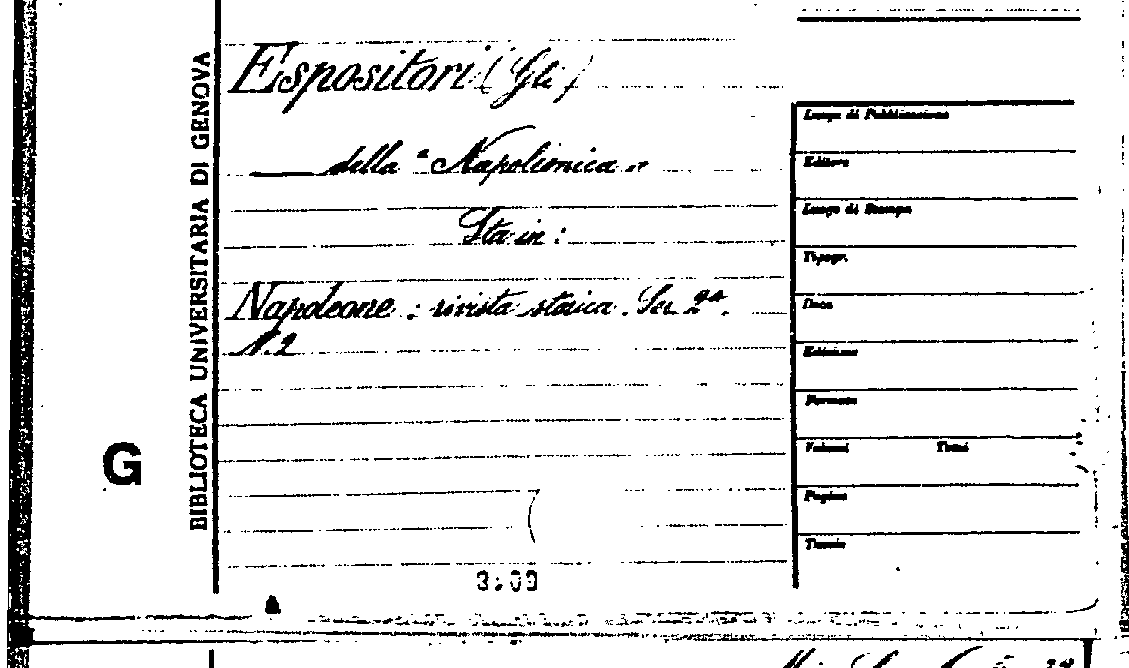 Espositori (Gli)
____ della "Napoleonica"
Sta in:
Napoleone: rivista storica. Ser. 2ª.
N. 2
G
BIBLIOTECA UNIVERSITARIA DI GENOVA
Luogo di Pubblicazione
Editore
Luogo di Stampa
Tipogr.
Data
Edizione
Formato
Volumi Tomi
Pagine